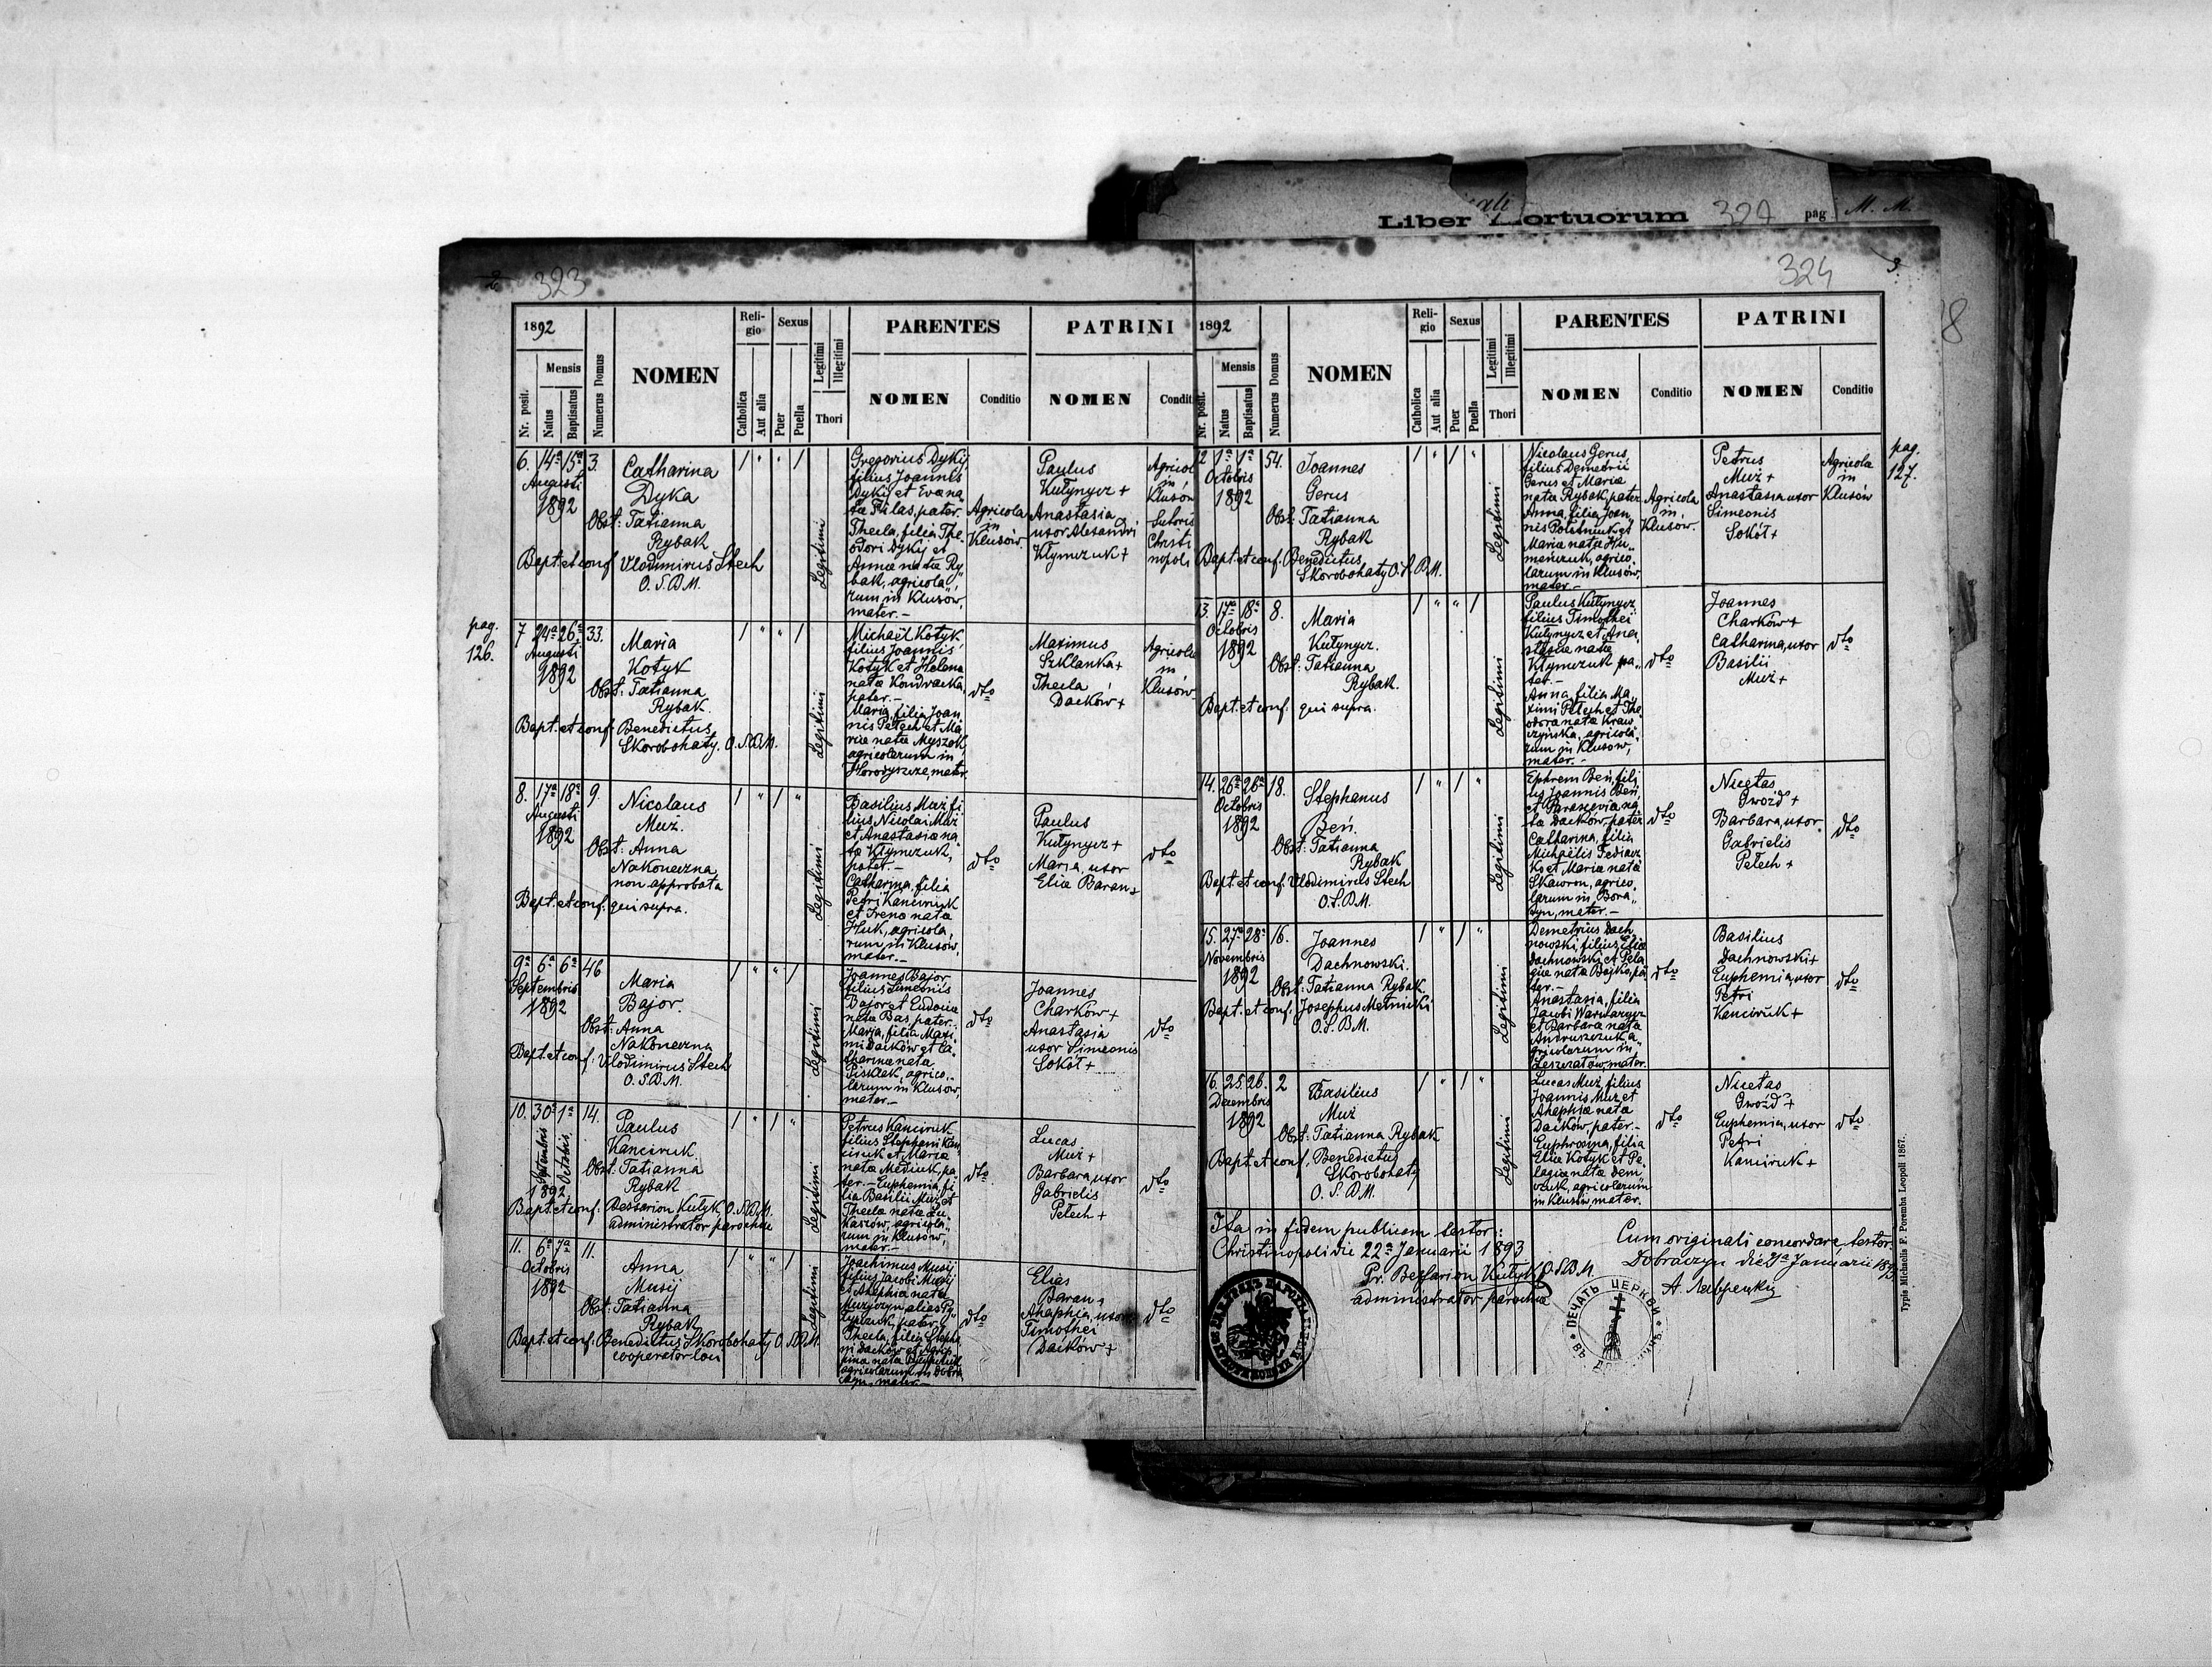 Liber Mortuorum 327 pag. M. M.
2 323
1892
Nr. posit.
Mensis
Natus
Baptisatus
Numerus Domus
NOMEN
Religio
Catholica
Aut alia
Sexus
Puer
Puella
Legitimi
Illegitimi
Thori
PARENTES
NOMEN
Conditio
PATRINI
NOMEN
Conditio
6. 14ª 15ª 3.
Augusti
1892
Catharina
Dyka
Obst: Tatianna
Rybak
Bapt. et conf. Vlodimirus Stech
O. S. B. M.
Legitimi
Gregorius Dykij,
filius Joannis
Dykij et Evæ na
tæ Filas, pater.
Theela, filia The-
odori Dykij et
Annæ natæ Ry
bak, agricola,,
rum in Klusów,
mater.-
Agricola
in
Klusów.
Paulus
Kułynycz +
Anastasia
uxor Alexandri
Kłymczuk +
Agricol
in
Klusów
Sutoris
Christi
nopoli
pag.
126.
7 24ª 26ª 33.
Augusti
1892
Maria
Kotyk
Obst: Tatianna
Rybak.
Bapt. et conf. Benedictus
Skorobohaty. O. S. B. M.
Legitimi
Michaël Kotyk
filius Joannis
Kotyk et Helena
nata Kondracka,
pater.-
Maria, filia Joan-
nis Pełech et Ma-
riæ natæ Myszak,
agricolarum in
Horodyszcze, mater.
dto
Maximus
Szklanka +
Theela
Daćków +
Agricolæ
in
Klusów
8. 17ª 18ª 9.
Augusti
1892
Nicolaus
Muż.
Obst: Anna
Nakoneczna
non approbata
Bapt. et conf. qui supra.
Legitimi
Basilius Muż fi
lius Nicolai Muż
et Anastasiæ na-
tæ Kłymczuk,
pater.-
Catharina, filia
Petri Kanciruk
et Irenæ natæ
Huk, agricola,
rum in Klusów,
mater.-
dto
Paulus
Kułynycz +
Maria, uxor
Eliæ Baran +
dto
9ª 6ª 6ª 46
Septembris
1892
Maria
Bajor.
Obst: Anna
Nakoneczna
Bapt. et conf. Vlodimirus Stech
O. S. B. M.
Legitimi
Joannes Bajor
filius Simeonis
Bajor et Eudoxiæ
natæ Bas, pater.-
Maria, filia Maxi-
mi Daćków et Ca-
tharinæ natæ
Pisklak, agrico,-
larum in Klusów,
mater.-
dto
Joannes
Charków +
Anastasia
uxor Simeonis
Sokół +
dto
10. 30ª 1ª 14.
Septembris
Octobris
1892
Paulus
Kanciruk.
Obst. Tatianna
Rybak
Bapt. et conf. Bessarion Kułyk O. S. B. M.
administrator parochiæ
Legitimi
Petrus Kanciruk
filius Stephani Kan
ciruk et Mariæ
natæ Mediuk, pa
ter.- Euphemia, fi
lia Basilii Muż et
Theelæ natæ Łu-
kasiów, agricola,,
rum in Klusów,
mater.-
dto
Lucas
Muż +
Barbara, uxor
Gabrielis
Pełech +
dto
11. 6ª 7ª 11.
Octobris
1892
Anna
Musij
Obst: Tatianna
Rybak
Bapt. et conf. Benedictus Skorobohaty O. S. B. M.
cooperator loci
Legitimi
Joachimus Musij
filius Jacobi Musij
et Ahaphiæ natæ
pater.
Theela, filia Stepha-
ni Daćków et
pinæ natæ
agricolarum in Dobra
czyn, mater.-
dto
Elias
Baran +
Ahaphia, uxor
Timothei
Daćków +
dto
324 3.
1892
Nr. posit.
Mensis
Natus
Baptisatus
Numerus Domus
NOMEN
Religio
Catholica
Aut alia
Sexus
Puer
Puella
Legitimi
Illegitimi
Thori
PARENTES
NOMEN
Conditio
PATRINI
NOMEN
Conditio
12 1ª 1ª 54.
Octobris
1892
Joannes
Gerus
Obst: Tatianna
Rybak
Bapt. et conf. Benedictus
Skorobohaty O. S. B. M.
Legitimi
Nicolaus Gerus,
filius Demetrii
Gerus et Mariæ
natæ Rybak, pater
Anna, filia Joan,
nis
Mariæ natæ Hu,,
meńczuk, agrico,
larum in Klusów,
mater.-
Agricola
in
Klusów.
Petrus
Muż +
Anastasia, uxor
Simeonis
Sokół +
Agricolæ
in
Klusów
pag.
127.
13. 17ª 18ª 8.
Octobris
1892
Maria
Kułynycz.
Obst: Tatianna
Rybak.
Bapt. et conf. qui supra.
Legitimi
Paulus Kułynycz
filius Timothei
Kułynycz et Ana-
stasiæ natæ
Kłymczuk pa,,
ter.-
Anna, filia Ma,,
ximi Pełech et The-
odoræ natæ Kraw
czyńska, agricola,
rum in Klusów,
mater.-
dto
Joannes
Charków +
Catharina, uxor
Basilii
Muż +
dto
14. 26ª 26ª 18.
Octobris
1892
Stephanus
Beń.
Obst: Tatianna
Rybak
Bapt. et conf. Vlodimirus Stech
O. S. B. M.
Legitimi
Ephrem Beń, fili
us Joannis Beń,
et Parasceviæ na
tæ Daćków, pater
Catharina, filia
Michaëlis Fediacz
ko et Mariæ natæ
Skawron, agrico,
larum in Bora,,
tyn, mater.-
dto
Nicetas
Gwozd +
Barbara, uxor
Gabrielis
Pełech +
dto
15. 27ª 28ª 16.
Novembris
1892
Joannes
Dachnowski.
Obst: Tatianna Rybak
Bapt. et conf. Josephus Metnicki
O. S. B. M.
Legitimi
Demetrius Dach
nowski, filius Eliæ
Dachnowski et Pela
giæ natæ Bojko, pa
ter.-
Anastasia, filia
Jacobi Warwarycz
et Barbaræ natæ
Andruszczuk, a-
gricolarum in
Leszczatów, mater.
dto
Basilius
Dachnowski +
Euphemia, uxor
Petri
Kanciruk +
dto
16. 25. 26. 2
Decembris
1892
Basilius
Muż
Obst: Tatianna Rybak
Bapt. et conf. Benedictus
Skorobohaty
O. S. B. M.
Legitimi
Lucas Muż, filius
Joannis Muż et
Ahaphiæ natæ
Daćków, pater.-
Euphrosina, filia
Eliæ Kotyk et Pe-
lagiæ natæ Dem
czuk, agricolarum
in Klusów, mater.
dto
Nicetas
Gwozd +
Euphemia, uxor
Petri
Kanciruk +
dto
Ita in fidem publicam testor:
Christinopoli die 22ª Januarii 1893.
Pr. Bessarion Kułyk O. S. B. M.
administrator parochiæ
Cum originali concordare, testor.
Dobraczyn die Januarii 189
ПЕЧАТЬ ЦЕРКВИ
Typis Michaelis F. Poremba Leopoli 1867.